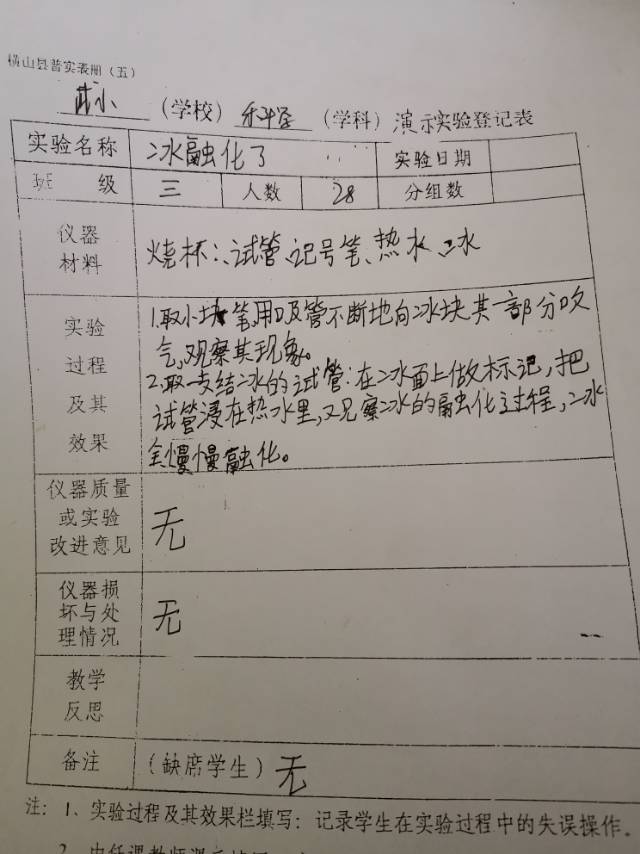 横山县普实表册（五）
小（学校）科学（学科）演示实验登记表
实验名称 冰融化了 实验日期
班级 三 人数 28 分组数
仪器材料 烧杯、试管、记号笔、热水、冰
实验过程及其效果
1.取小块 笔,用吸管不断地向冰块其一部分吹
气,观察其现象。
2.取一支结冰的试管:在冰面上做标记,把
试管浸在热水里,观察冰的融化过程,冰
全慢慢融化。
仪器质量或实验改进意见 无
仪器损坏与处理情况 无
教学反思
备注（缺席学生）无
注：1、实验过程及其效果栏填写：记录学生在实验过程中的失误操作。
2、由任课教师